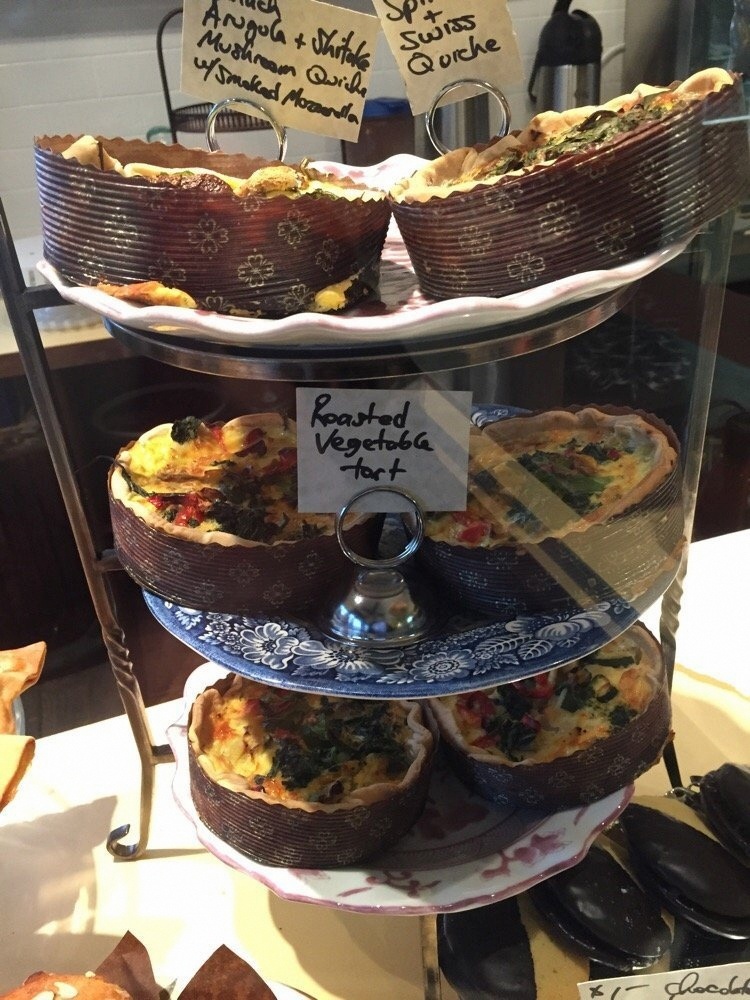 Arugula + Shitake
Mushroom Quiche
w/ Smoked Mozzarella
+
Swiss
Quiche
Roasted
Vegetable
tart